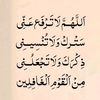 اَللّٰهُمَّ لَا تَرْفَعْ عَنِّي
سِتْرَكَ وَلَا تُنْسِنِي
ذِكْرَكَ وَلَا تَجْعَلْنِي
مِنَ الْقَوْمِ الْغَافِلِينَ